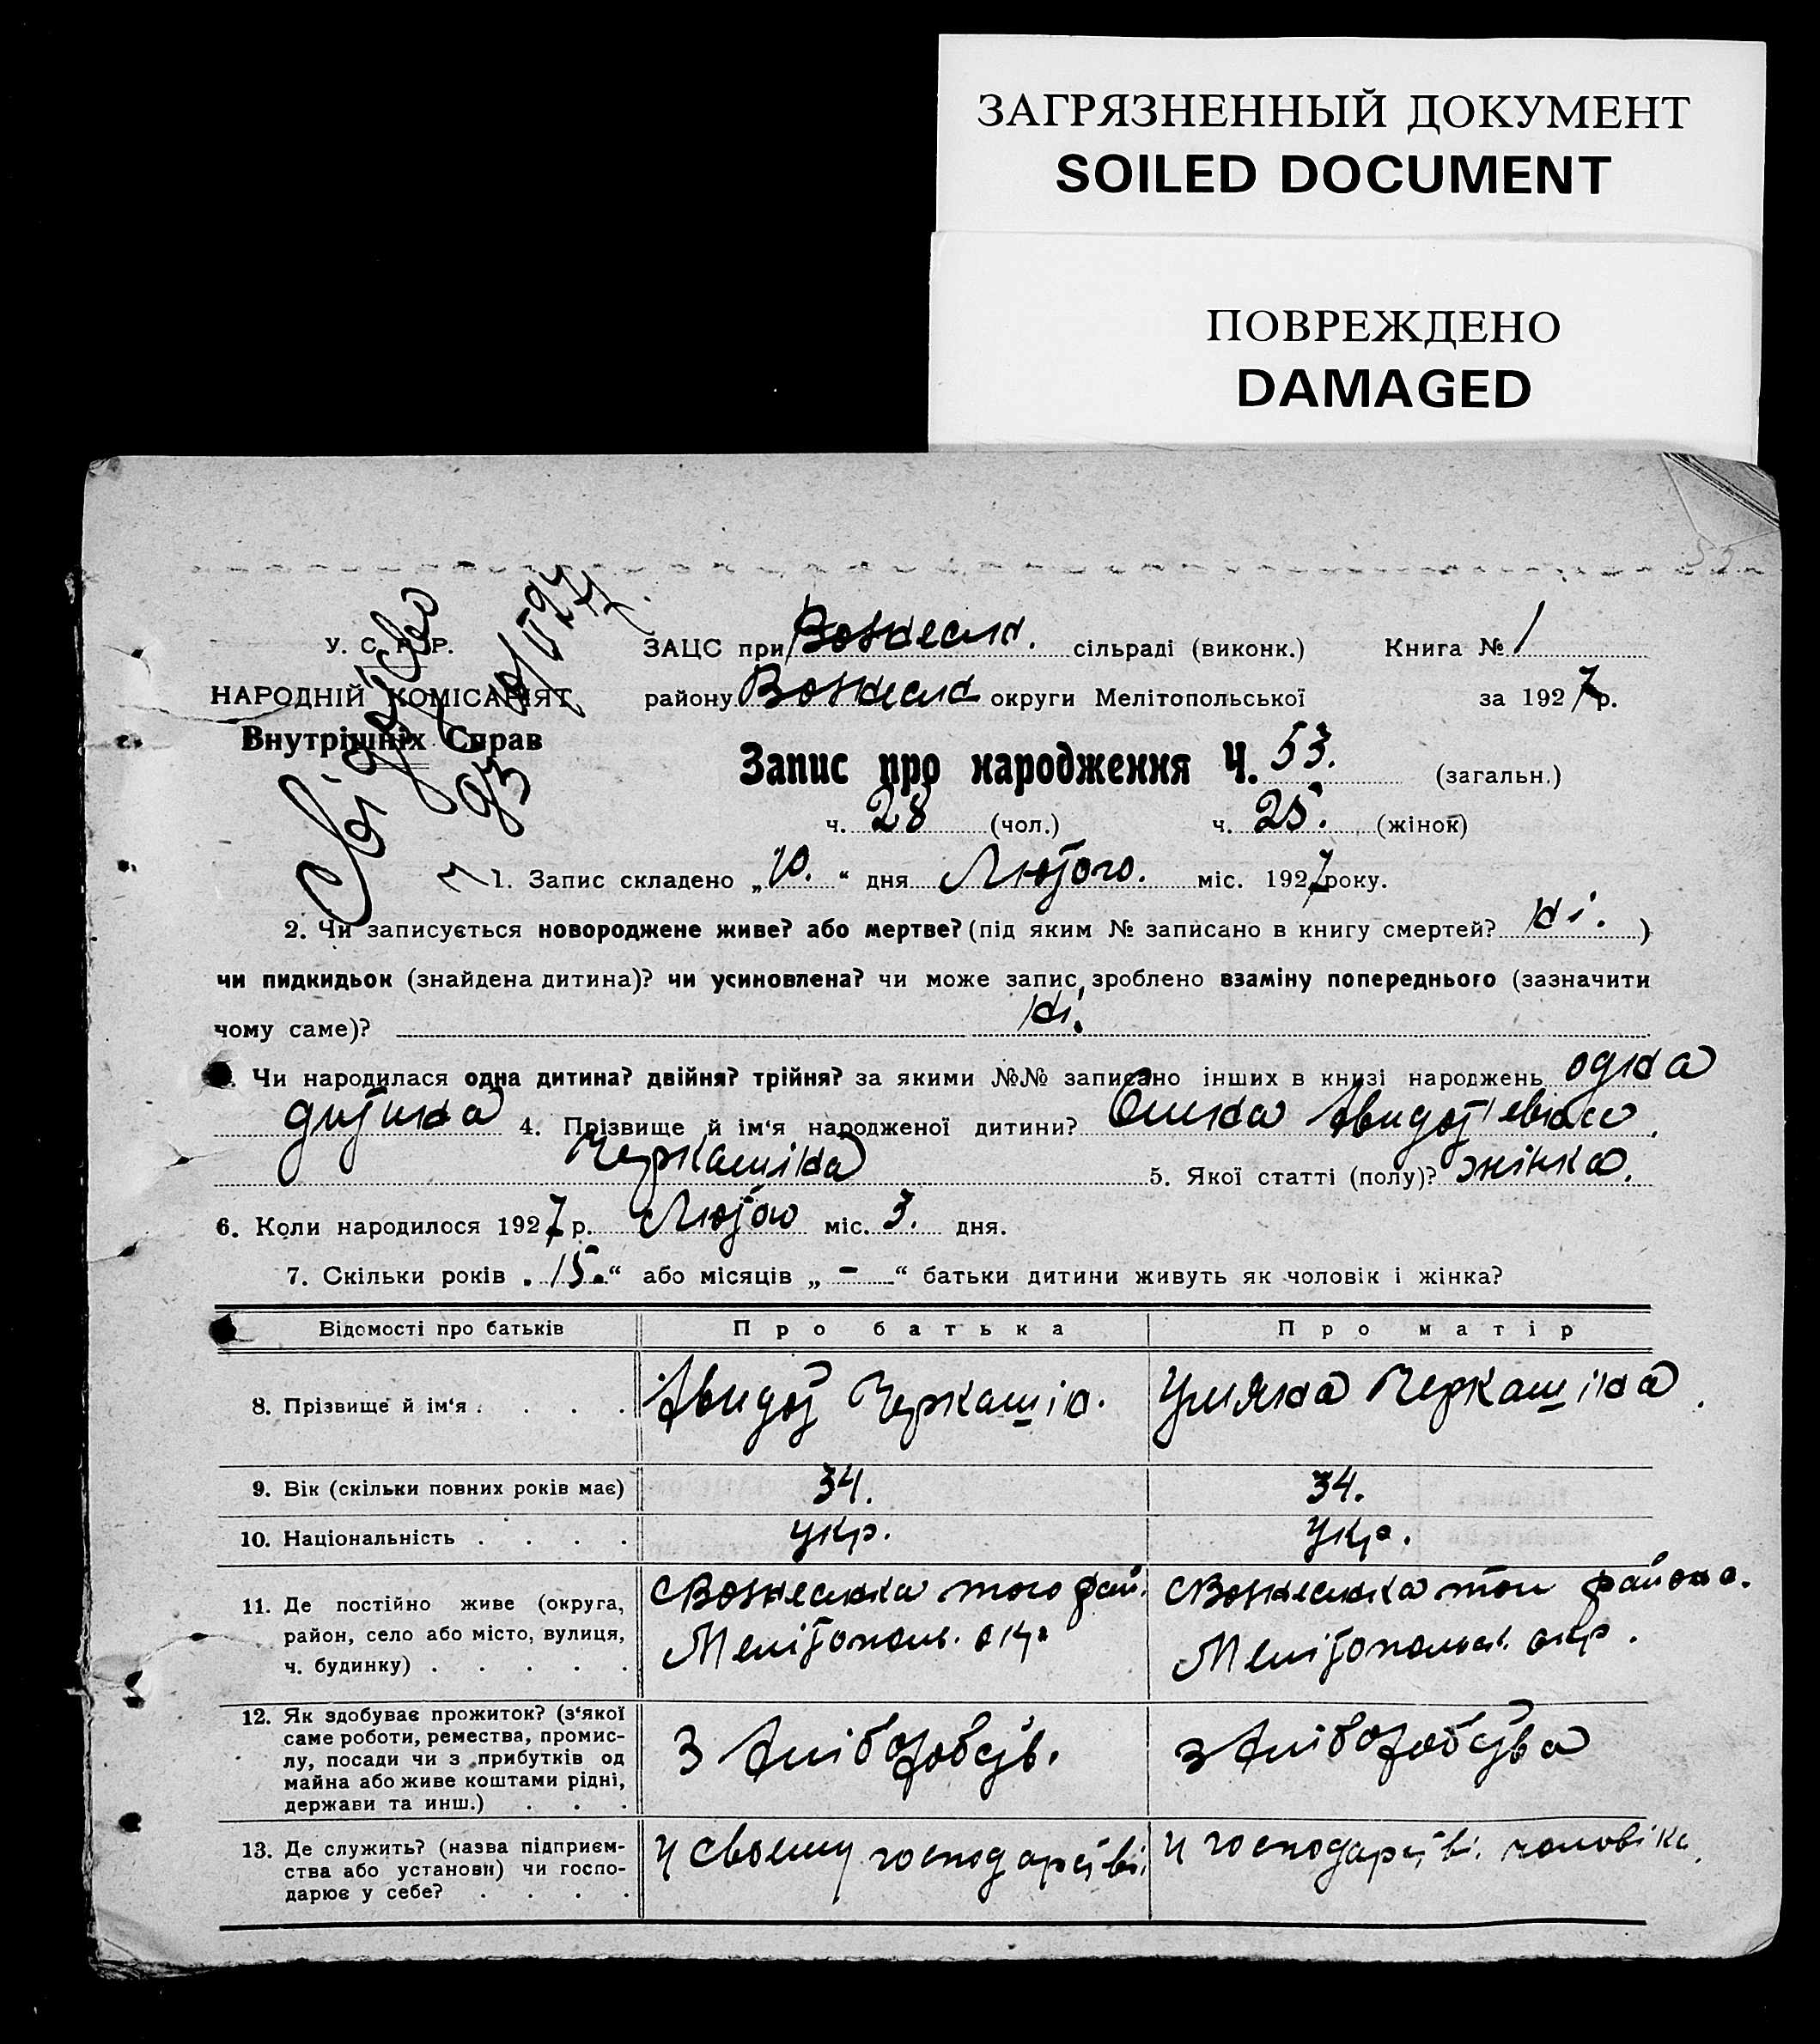 ЗАГРЯЗНЕННЫЙ ДОКУМЕНТ
SOILED DOCUMENT
ПОВРЕЖДЕНО
DAMAGED
У. С. Р. Р.
НАРОДНІЙ КОМІСАРІЯТ
Внутрішніх Справ
ЗАЦС при Вознесен. сільраді (виконк.) Книга № 1
району Вознесен округи Мелітопольської за 1927 р.
Запис про народження Ч. 53. (загальн.)
ч. 28 (чол.) ч. 25. (жінок)
1. Запис складено „10.“ дня Лютого. міс. 1927 року.
2. Чи записується новороджене живе? або мертве? (під яким № записано в книгу смертей? Ні. )
чи пидкидьок (знайдена дитина)? чи усиновлена? чи може запис зроблено взаміну попереднього (зазначити
чому саме)? Ні.
Чи народилася одна дитина? двійня? трійня? за якими №№ записано інших в книзі народжень одна
дитина 4. Прізвище й ім‘я народженої дитини?
Черкашіна 5. Якої статті (полу)? жінка.
6. Коли народилося 1927 р. Лютого міс. 3. дня.
7. Скільки років „15.“ або місяців „ - “ батьки дитини живуть як чоловік і жінка?
Відомості про батьків Про батька Про матір
8. Прізвище й ім‘я . . . . Авидот Черкашін. Уляна Черкашіна.
9. Вік (скільки повних років має) 34. 34.
10. Національність . . . . укр. укр.
11. Де постійно живе (округа,
район, село або місто, вулиця,
ч. будинку) . . . . .
с Вознесенка того рай.
Мелітополь. окр
с Вознесенка того району.
Мелітопольск. окр.
12. Як здобуває прожиток? (з‘якої
саме роботи, ремества, промис-
лу, посади чи з прибутків од
майна або живе коштами рідні,
держави та инш.) . . .
З хліборобств.
з хліборобства
13. Де служить? (назва підприєм-
ства або установи) чи госпо-
дарює у себе? . . . .
У своєму господарстві.
У господарстві. чоловіка.